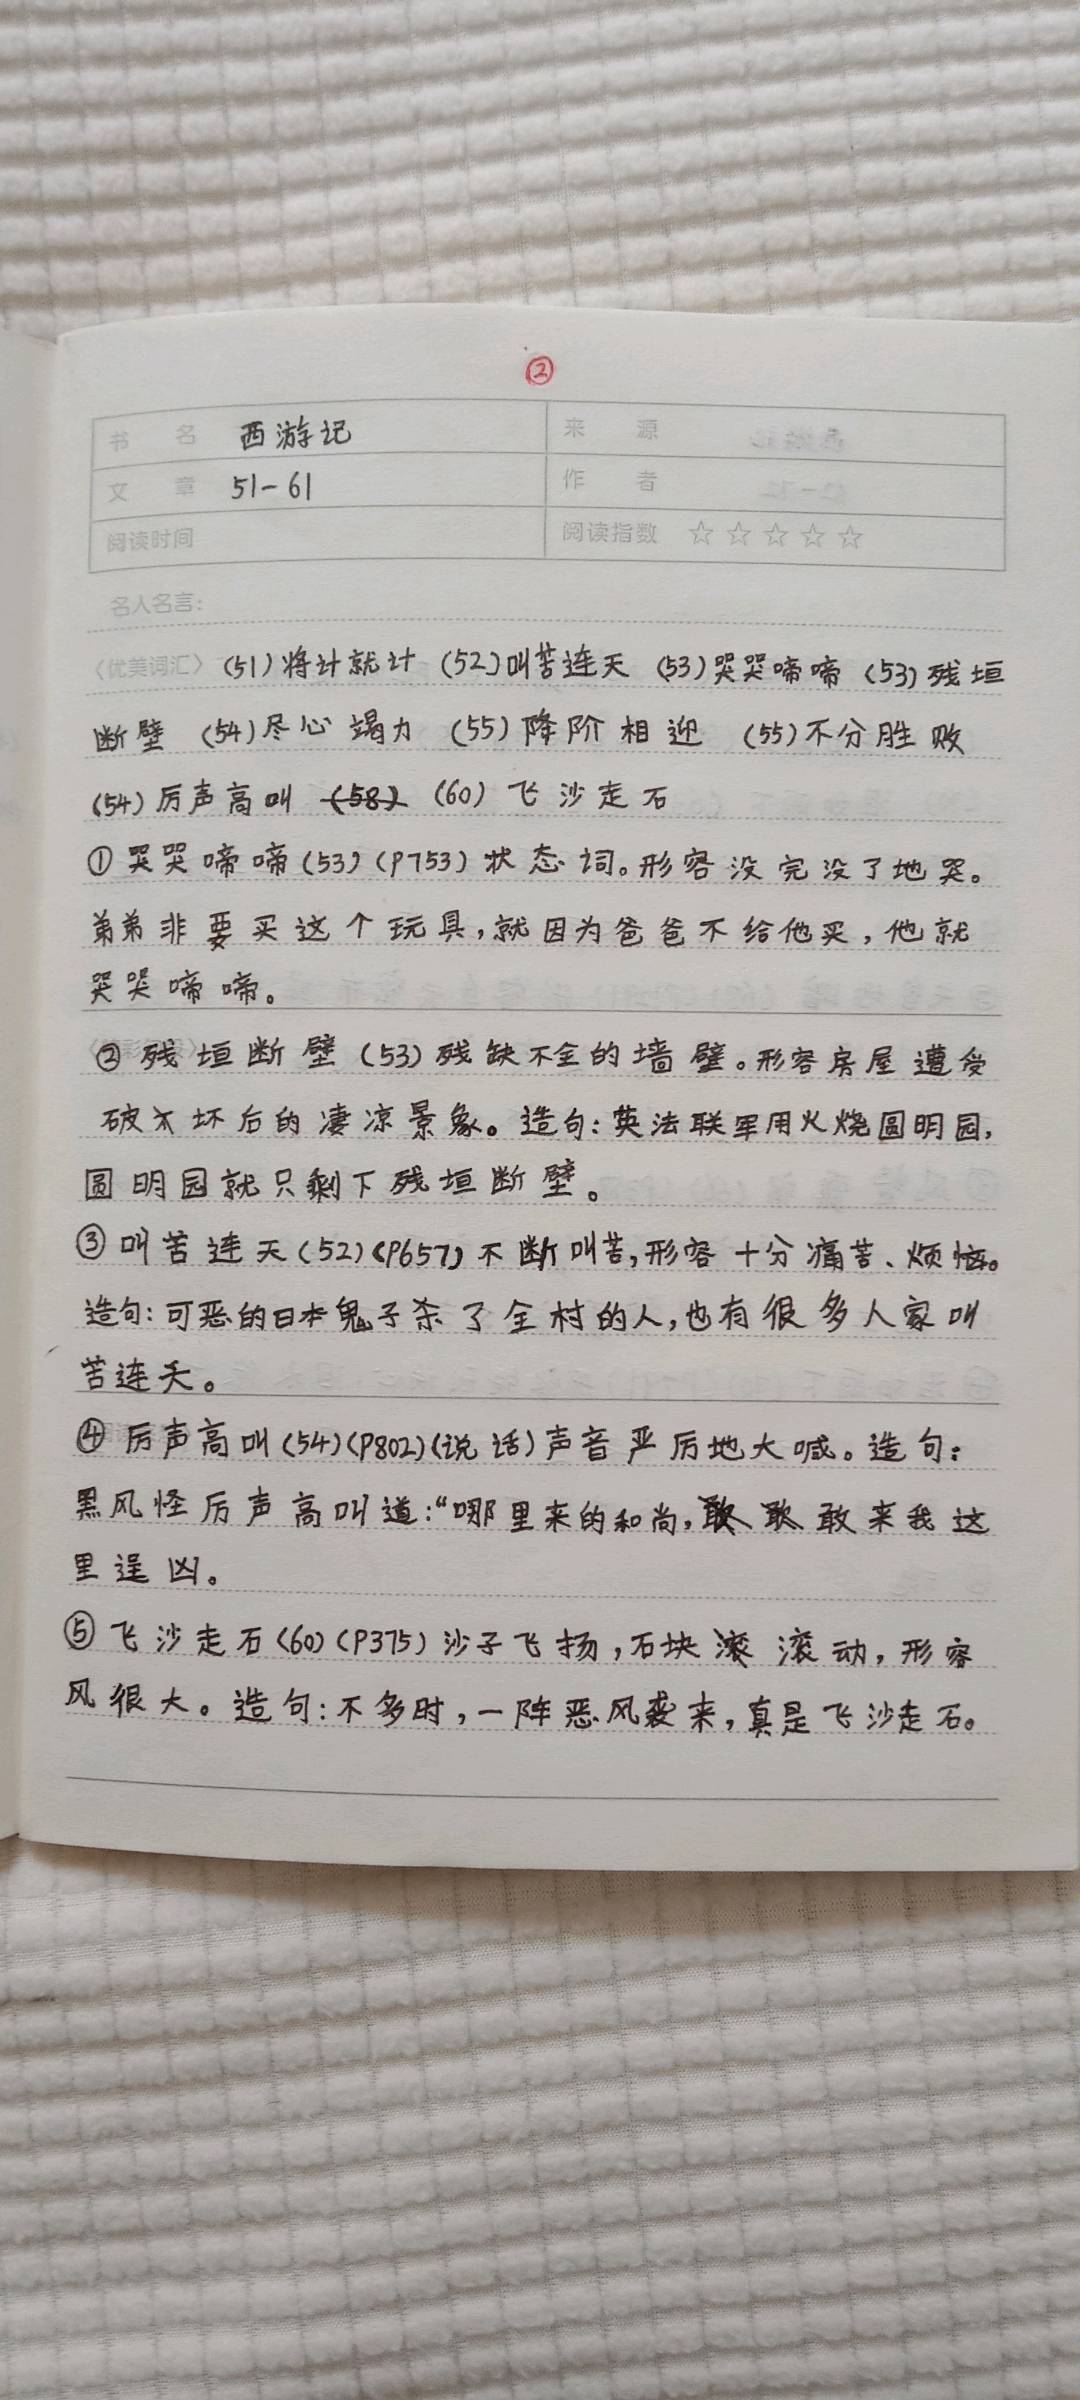 ②
书 名 西游记 来 源
文 章 51-61 作 者
阅读时间 阅读指数 ☆☆☆☆☆
名人名言:
〈优美词汇〉(51)将计就计 (52)叫苦连天 (53)哭哭啼啼 (53)残垣
断壁 (54)尽心竭力 (55)降阶相迎 (55)不分胜败
(54)厉声高叫 (58) (60)飞沙走石
①哭哭啼啼(53)(P753)状态词。形容没完没了地哭。
弟弟非要买这个玩具,就因为爸爸不给他买,他就
哭哭啼啼。
②残垣断壁(53)残缺不全的墙壁。形容房屋遭受
破坏后的凄凉景象。造句:英法联军用火烧圆明园,
圆明园就只剩下残垣断壁。
③叫苦连天(52)(P657)不断叫苦,形容十分痛苦、烦恼。
造句:可恶的日本鬼子杀了全村的人,也有很多人家叫
苦连天。
④厉声高叫(54)(P802)(说话)声音严厉地大喊。造句:
黑风怪厉声高叫道:“哪里来的和尚,敢来我这
里逞凶。
⑤飞沙走石(60)(P375)沙子飞扬,石块滚滚动,形容
风很大。造句:不多时,一阵恶风袭来,真是飞沙走石。